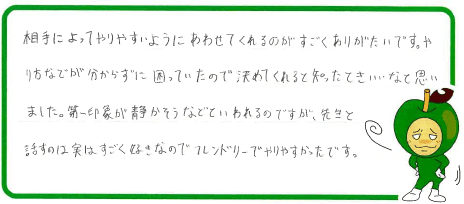 相手によってやりやすいようにあわせてくれるのがすごくありがたいです。や
り方などが分からずに困っていたので決めてくれると知ったときいいなと思い
ました。第一印象が静かそうなどといわれるのですが、先生と
話すのは実はすごく好きなのでフレンドリーでやりやすかったです。